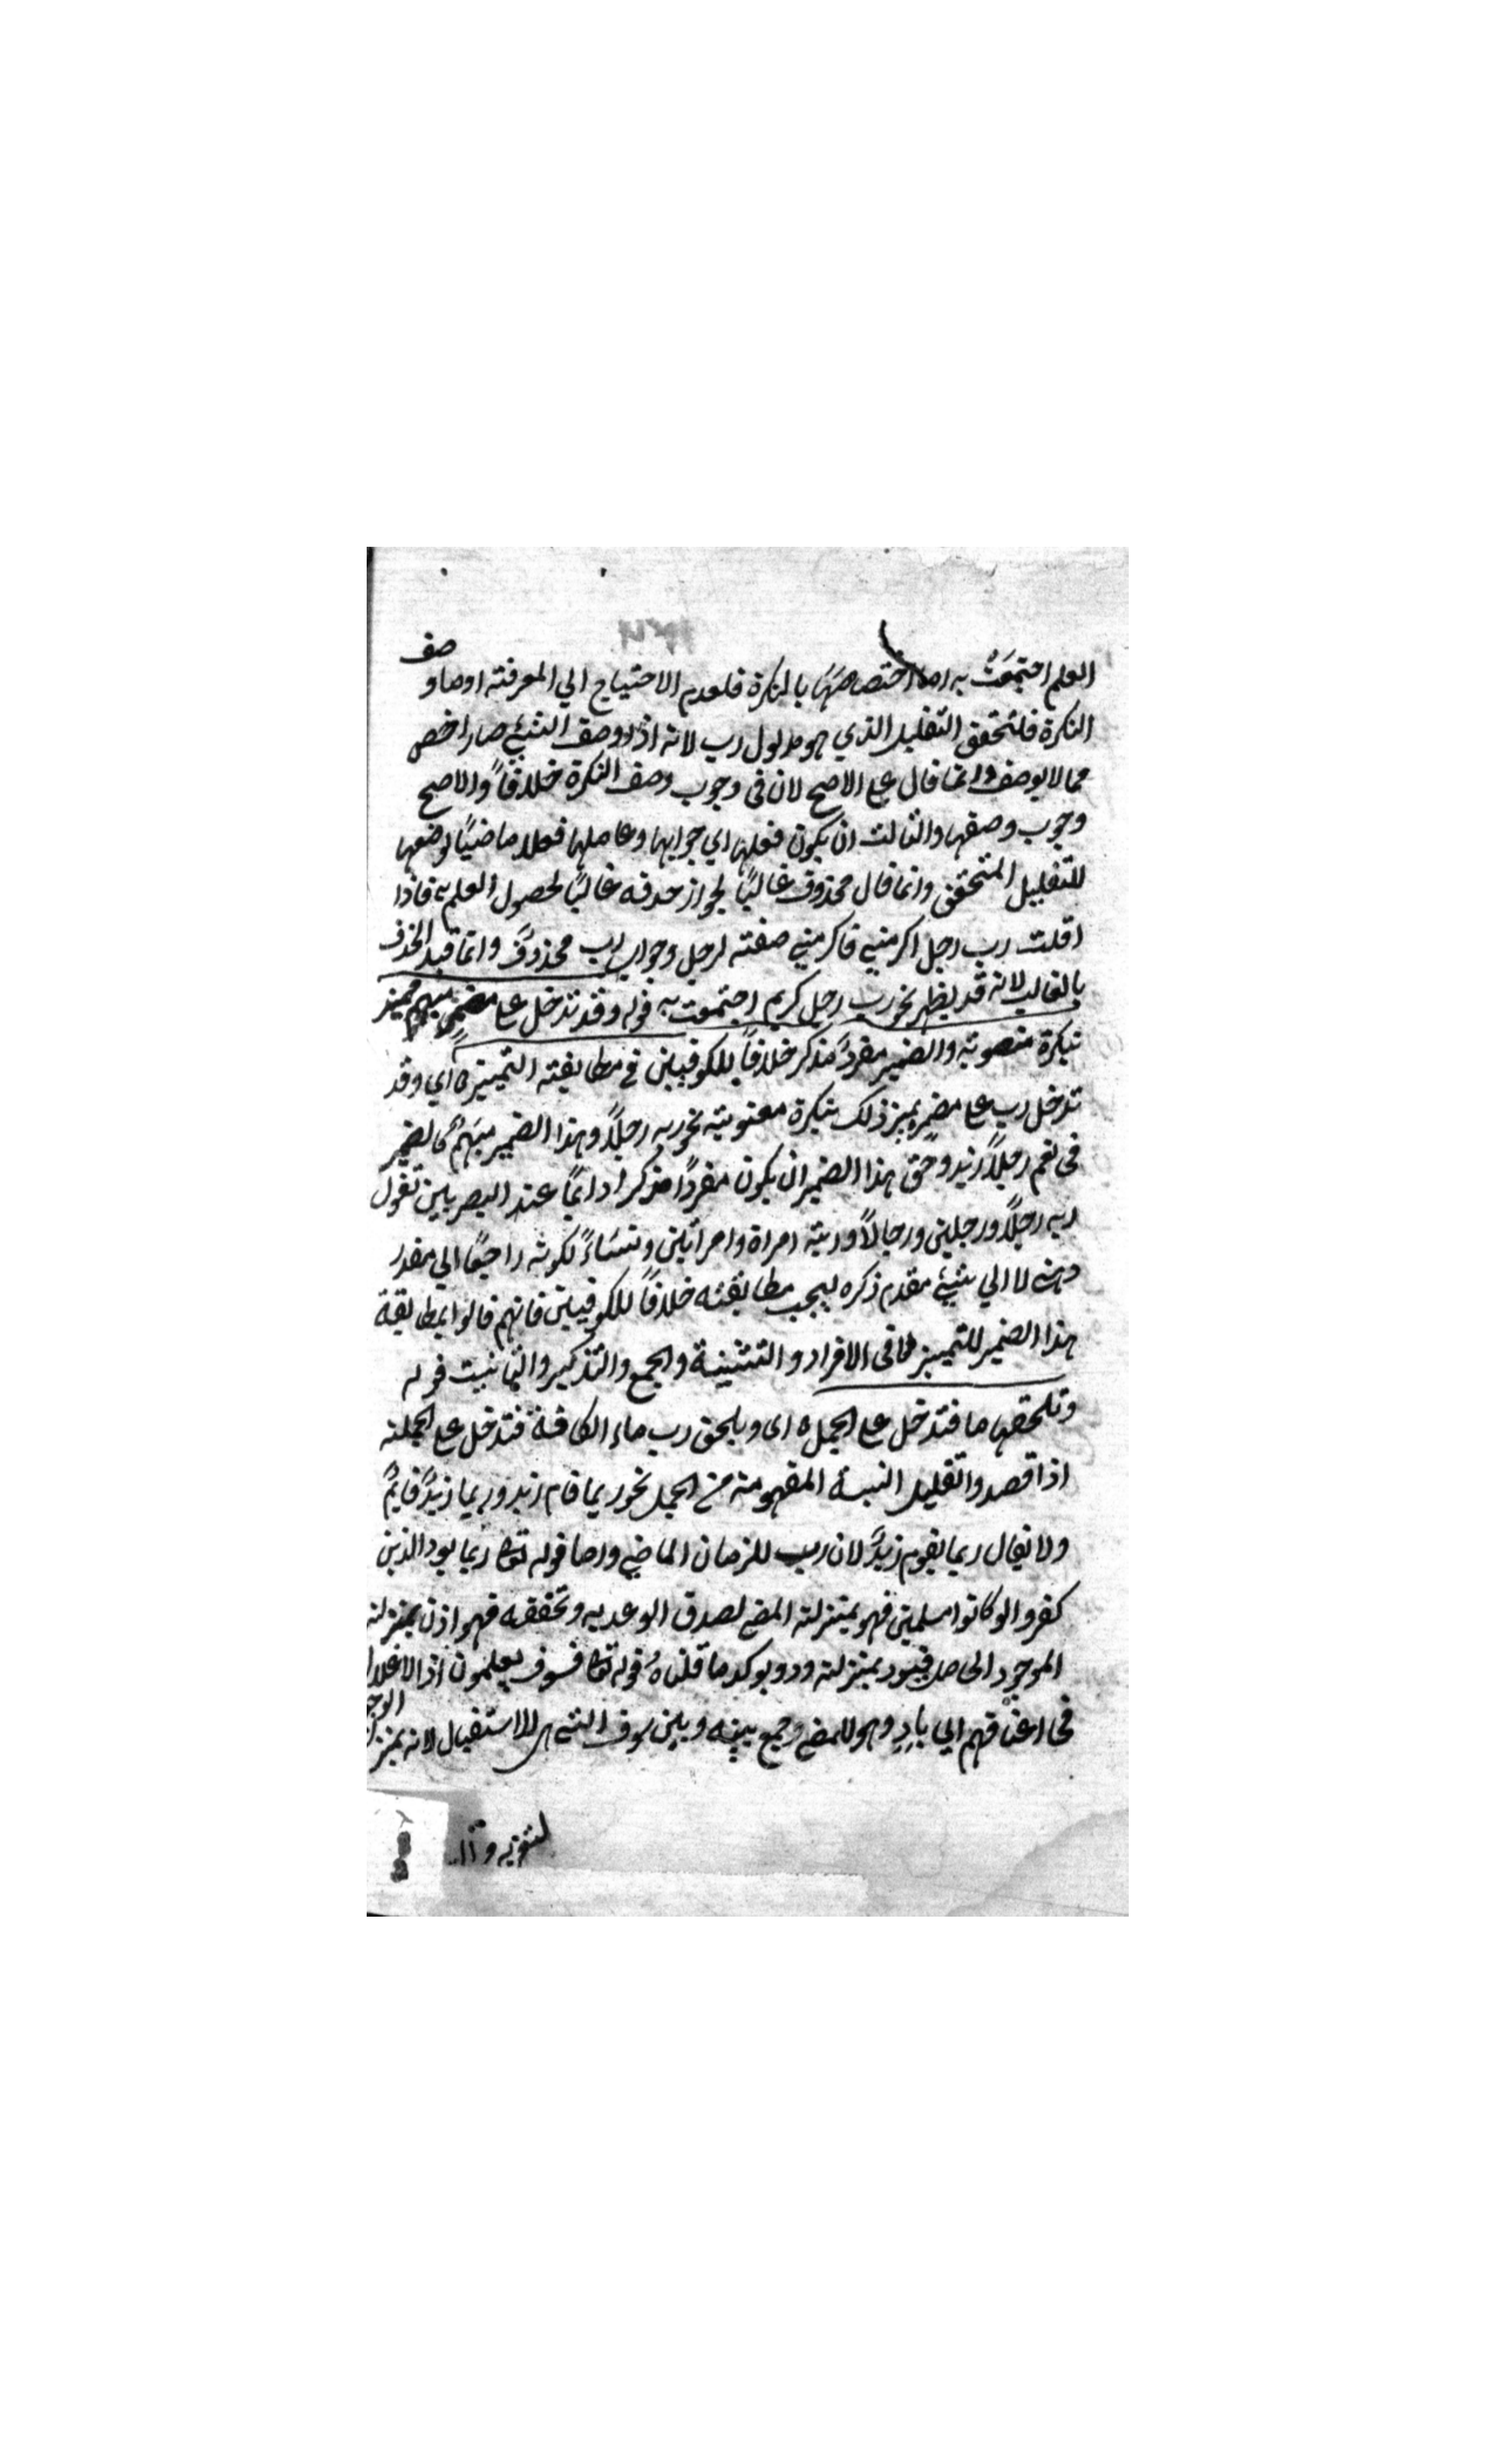 العلم اجتمعت به اما اختصاصها بالنكرة فلعدم الاحتياج الي المعرفته اوصاو
صف
النكرة فلتحقق التقليل الذي هو مدلول رب لانه اذا وصف الشيئ صار اخص
مما لا يوصف وانما قال على الاصح لان فى وجوب وصف النكرة خلافاً والاصح
وجوب وصفها والثالث ان يكون فعلها اي جوابها وعاملها فعلا ماضيًا لوضعها
للتقليل المتحقق وانما قال محذوف غالبًا لجواز حذفه غالبًا لحصول العلم به فاذا
اقلت رب رجل اكرمني فاكرمني صفته لرجل وجواب رب محذوف وانما قيد الحذف
بالغالب لانه قد يظهر نحو رب رجل كريم اجتمعت به قوله وقد تدخل على مضمر مبهم مميز
بنكرة منصوبة والضمير مفرد مذكر خلافاً للكوفيين في مطابقته التمييز ه اي وقد
تدخل رب على مضمر يميز ذلك بنكرة منصوبته نحو ربه رجلاً وهذا الضمير مبهم كالضمير
فى نعم رجلاً زيد وحق هذا الضمير ان يكون مفردًا مذكرا دائمًا عند البصريين تقول
ربه رجلاً ورجلين ورجالاً وربته امراة وامرائين ونساءً لكونه راجعًا الي مقدر
ذهني لا الي شيئ مقدم ذكره ليجب مطابقته خلافاً للكوفيين فانهم قالوا بمطابقة
هذا الضمير للتمييز فى الافراد والتثنية والجمع والتذكير والتانيث قوله
وتلحقها ما فتدخل على الجمل ه اى ويلحق رب ماء الكافة فتدخل على الجملته
اذا قصدوا تقليل النسبة المفهومة من الجمل نحو ربما قام زيد وربما زيد قايم
ولا يقال ربما يقوم زيد لان رب للزمان الماضي واما قوله تعا ربما يود الذين
كفروا لو كانوا مسلمين فهو بمنزلته المضي لصدق الوعد به وتحققه فهو اذن بمنزلته
الموجود الحاصل فيود بمنزلته ود ويوكد ما قلناه قوله تعا فسوف يعلمون اذ الاغلال
فى اعناقهم الي باذ وهو للمضي وجمع بينه وبين سوف التي هي للاستقبال لانه بمنزلة
الوجو
لتقويه و